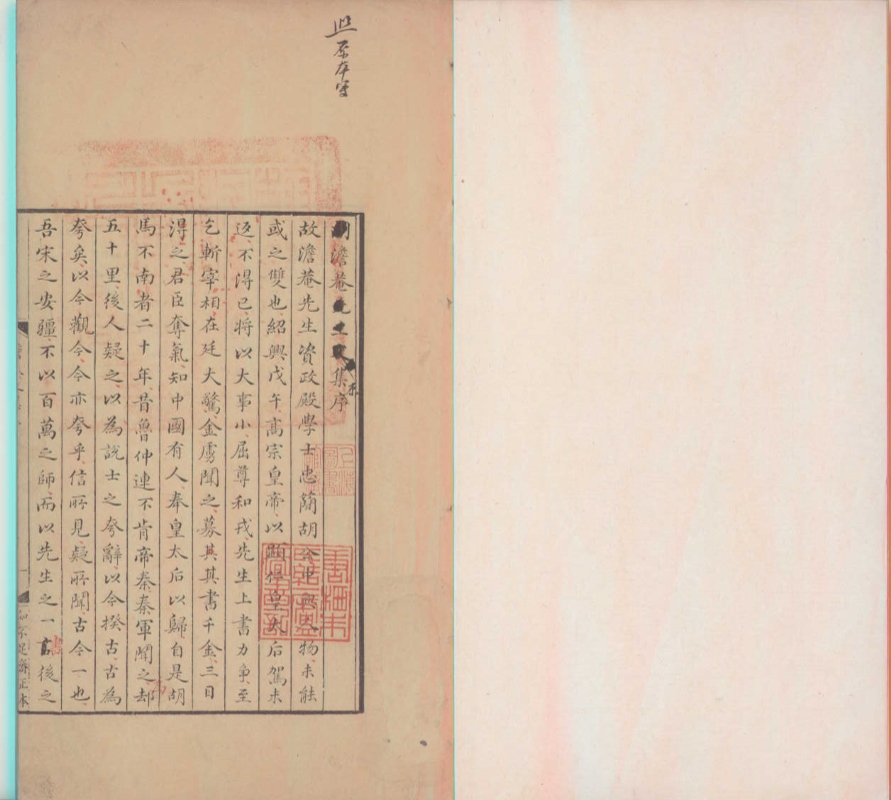 照原本寫
胡澹菴先生文集序
故澹菴先生資政殿學士忠簡胡公中興人物未能
或之雙也紹興戊午高宗皇帝以顯仁皇太后駕未
返不得已將以大事小屈尊和戎先生上書力争至
乞斬宰相在廷大驚金虜聞之募其書千金三日
得之君臣奪氣知中國有人奉皇太后以歸自是胡
馬不南者二十年昔魯仲連不肯帝秦秦軍聞之却
五十里後人疑之以為說士之夸辭以今揆古古為
夸矣以今觀今今亦夸乎信所見疑所聞古今一也
吾宋之安疆不以百萬之師而以先生之一言後之